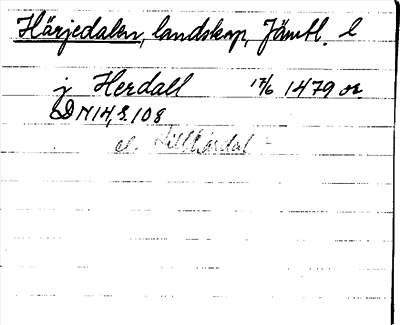 Härjedalen, landskap, Jämtl. l
j Herdall 17/6 1479 or
DN 14, s. 108
el. Lillhärdal